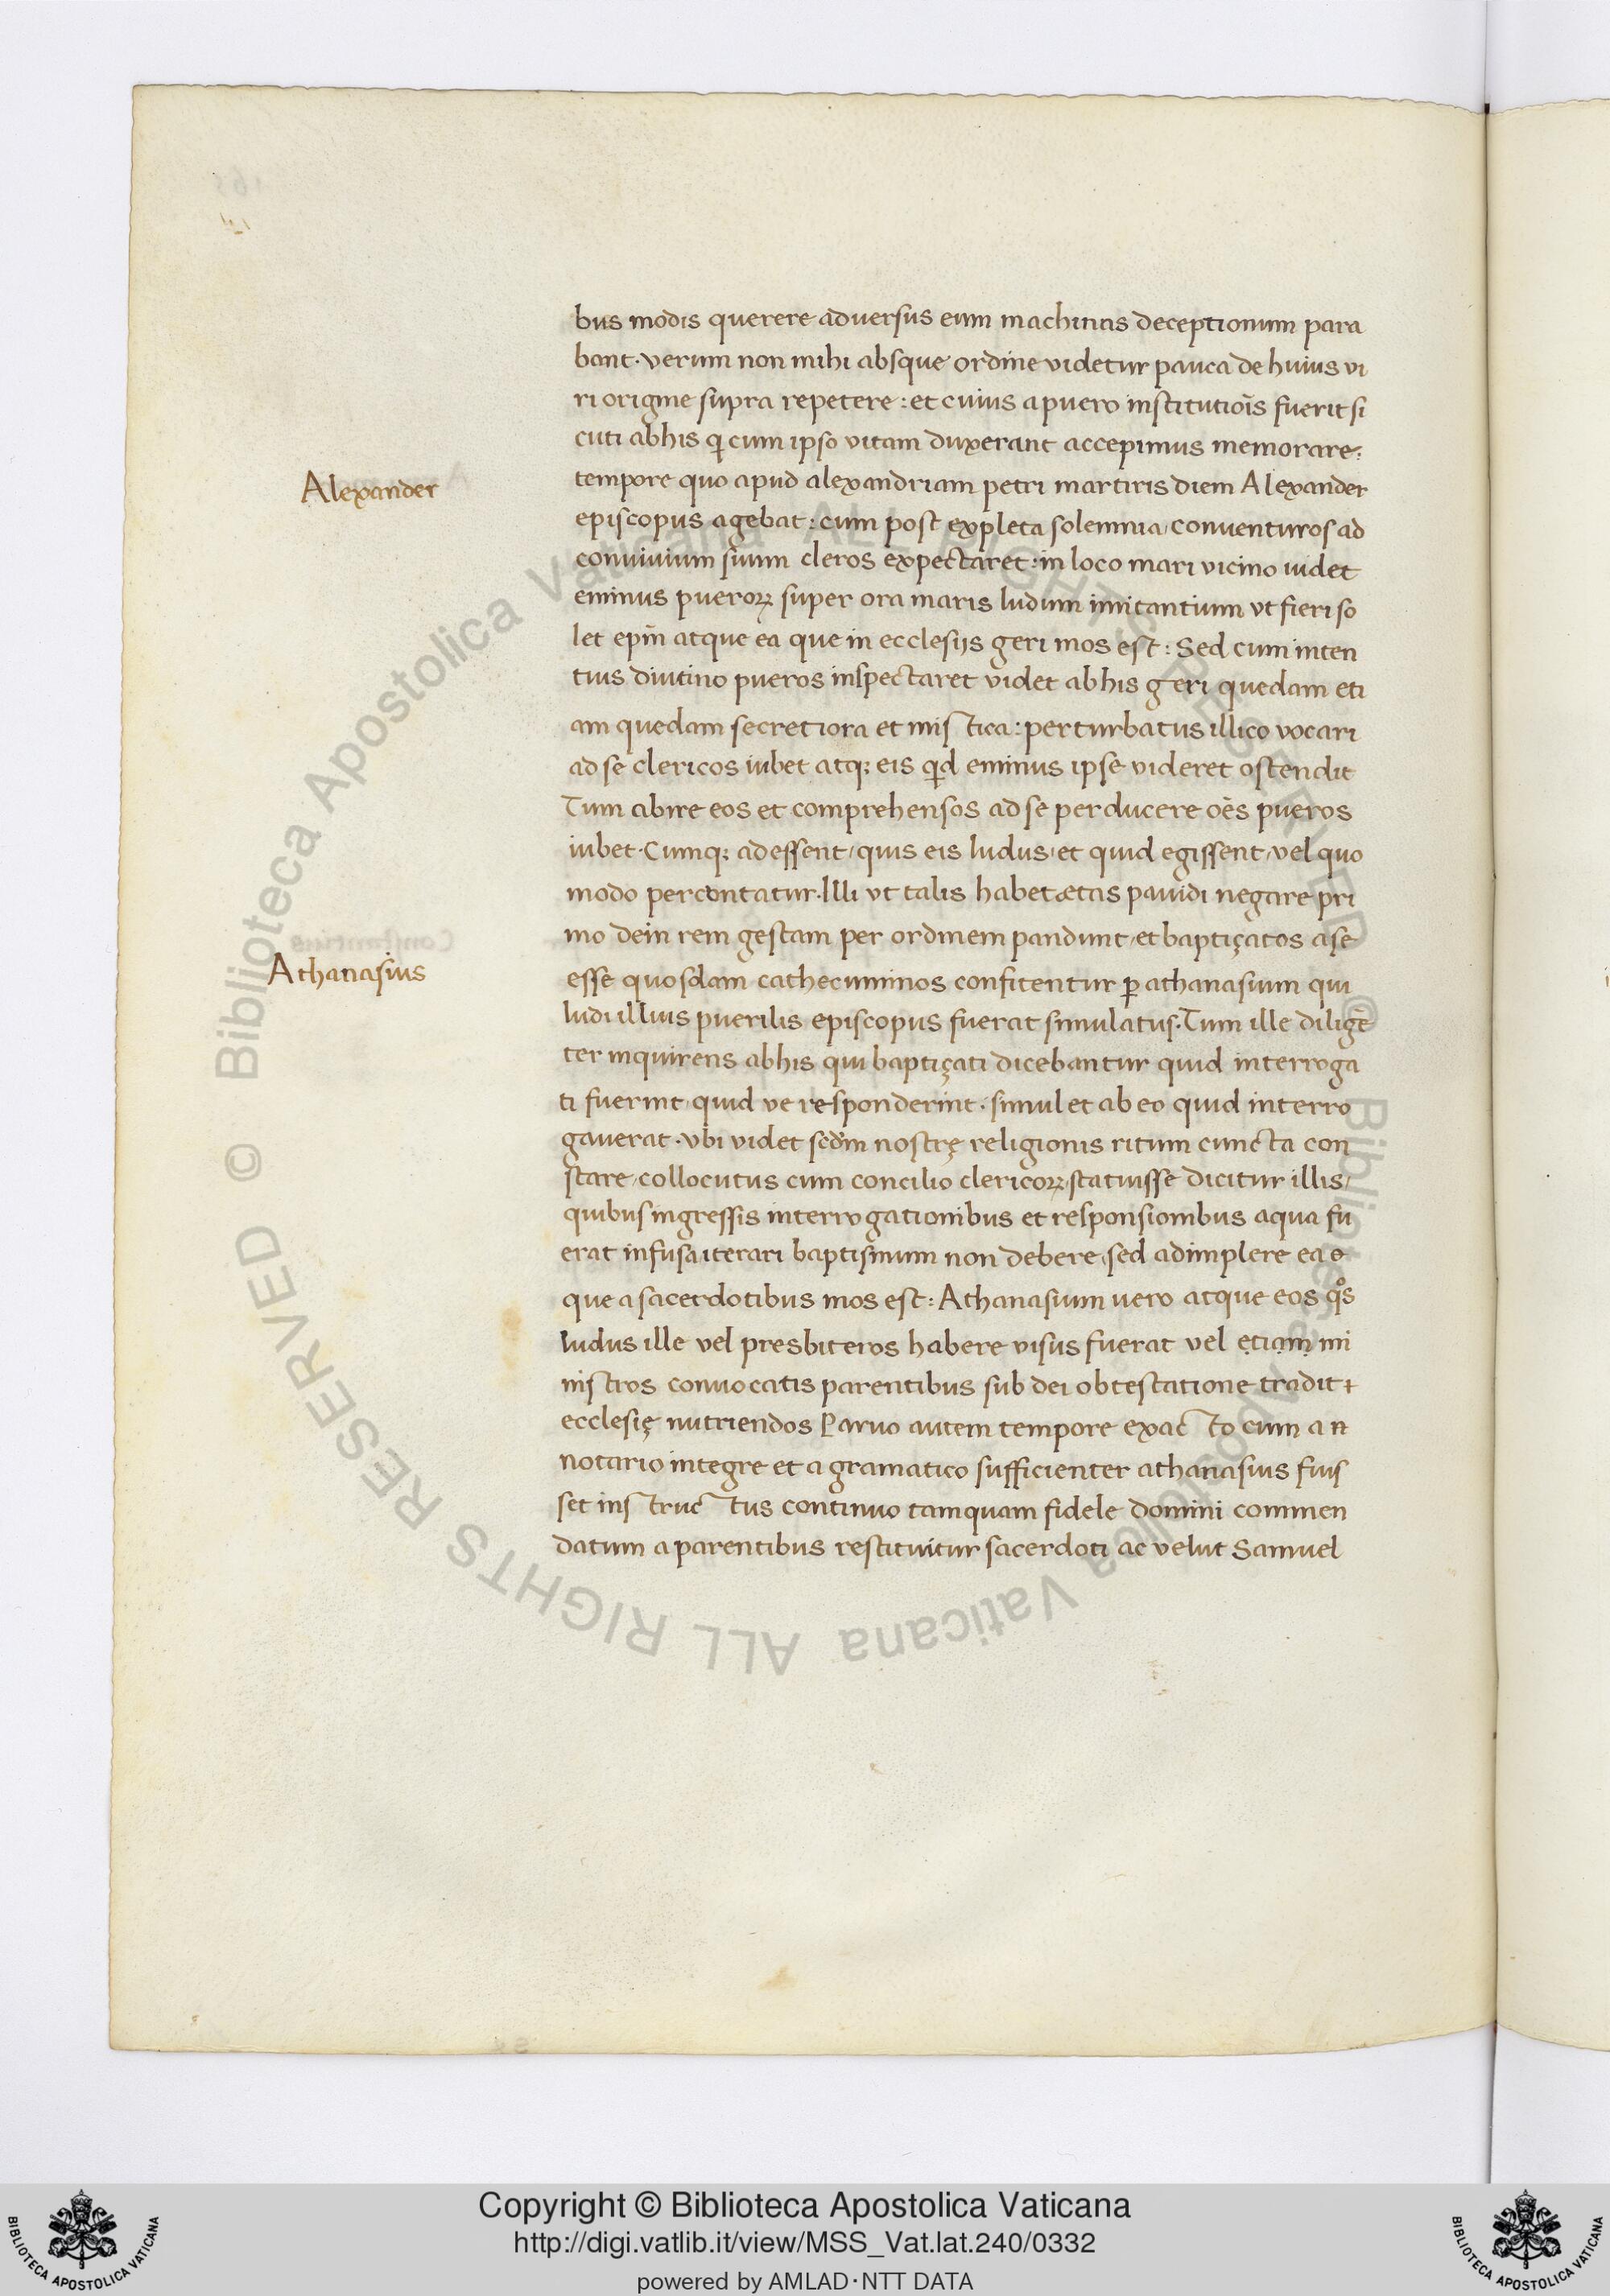 bus modis querere adversus eum machinas deceptionum para
bant · verum non mihi absque ordine videtur pauca de huius vi
ri origine supra repetere : et cuius a puero institutiōīs fuerit si
cuti ab his qͥ cum ipso vitam duxerant accepimus memorare :
Alexander
tempore quo apud alexandriam petri martiris diem Alexander
episcopus agebat : cum post expleta solemnia / conventuros ad
convivium suum cleros expectaret : in loco mari vicino videt
eminus pueroꝝ super ora maris ludum imitantium vt fieri so
let ep̄m atque ea que in ecclesijs geri mos est : Sed cum inten
tius diutino pueros inspectaret videt ab his geri quedam eti
am quedam secretiora et mistica : perturbatus illico vocari
ad se clericos iubet atqꝫ eis qͥd eminus ipse videret ostendit
Tum abire eos et comprehensos ad se perducere oēs pueros
iubet · Cumqꝫ adessent / quis eis ludus / et quid egissent / vel quo
modo percontatur · Illi vt talis habet ætas pavidi negare pri
mo dein rem gestam per ordinem pandunt / et baptiçatos a se
Athanasius
esse quosdam cathecuminos confitentur ꝑ athanasium qui
ludi illius puerilis episcopus fuerat simulatus · Tum ille diligē
ter inquirens ab his qui baptiçati dicebantur quid interroga
ti fuerint quid ve responderint · simul et ab eo quid interro
gaverat · vbi videt scd̄m nostrę religionis ritum cuncta con
stare / collocutus cum concilio clericoꝝ / statuisse dicitur illis /
quibus ingressis interrogationibus et responsionibus aqua fu
erat infusa iterari baptismum non debere / sed adimplere ea e
que a sacerdotibus mos est : Athanasium vero atque eos qͦs
ludus ille vel presbiteros habere visus fuerat vel etiam mi
nistros convocatis parentibus sub dei obtestatione tradit
ecclesię nutriendos Parvo autem tempore exacto cum a n
notario integre et a gramatico sufficienter athanasius fuis
set instructus continuo tamquam fidele domini commen
datum a parentibus restituitur sacerdoti ac velut Samuel
© Biblioteca Apostolica Vaticana ALL RIGHTS RESERVED © Biblioteca Apostolica Vaticana ALL RIGHTS RESERVED
BIBLIOTECA APOSTOLICA VATICANA
Copyright © Biblioteca Apostolica Vaticana
http://digi.vatlib.it/view/MSS_Vat.lat.240/0332
powered by AMLAD · NTT DATA
BIBLIOTECA APOSTOLICA VATICANA